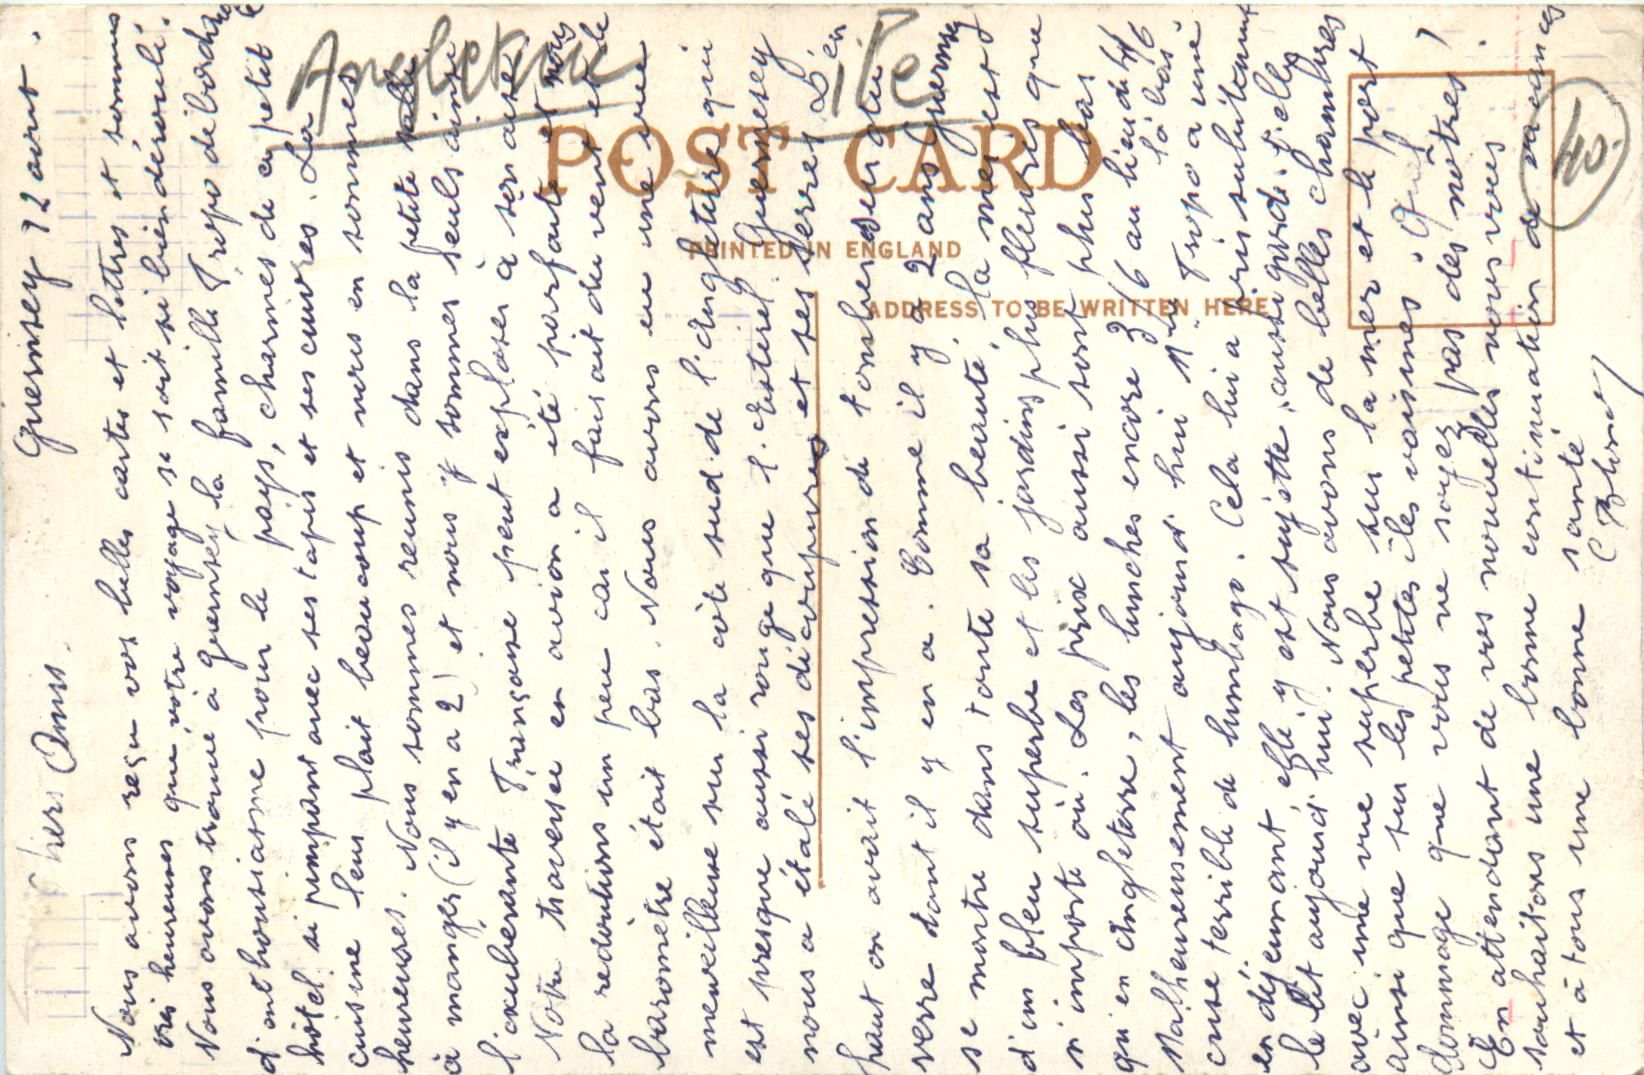 Angleterre
Île
40.
POST CARD
PRINTED IN ENGLAND
ADDRESS TO BE WRITTEN HERE
Guernesey 12 aout.
Chers Amis.
Nous avons reçu vos belles cartes et lettres et sommes
très heureuses que votre voyage se soit si bien déroulé.
Nous avons trouvé à Guernsey la famille Tropo débordante
d'enthousiasme pour le pays, charmés de ce petit
hôtel si pimpant avec ses tapis et ses cuivres. La
cuisine leur plait beaucoup et nous en sommes
heureuses. Nous sommes reunis dans la petite salle
à manger (il y en a 2) et nous y sommes seuls ainsi
l'exuberante Françoise peut exploser à son aise
Notre traversée en avion a été parfaite et nous
la redoutions un peu car il faisait du vent et le
baromètre était bas. Nous avons eu une vue
merveilleuse sur la côte sud de l'Angleterre qui
est presque aussi rouge que l'Esterel. Guernesey
nous a étalé ses découpures et ses serres. D'en
haut on avait l'impression de tomber sur du
verre tant il y en a. Comme il y a 2 ans Guernesey
se montre dans toute sa beauté, la mer est
d'un bleu superbe et les jardins plus fleuris que
n'importe où. Les prix aussi sont plus bas
qu'en Angleterre, les lunches encore 3/6 au lieu de 4/6 là bas
Malheureusement aujourd'hui Mme Tropo a une
crise terrible de lumbago. Cela lui a pris subitement
en déjeunant, elle y est sujette, aussi garde-t-elle
le lit aujourd'hui. Nous avons de belles chambres
avec une vue superbe sur la mer et le port
ainsi que sur les petites îles voisines. Quel
dommage que vous ne soyez pas des nôtres!
En attendant de vos nouvelles nous vous
souhaitons une bonne continuation de vacances
et à tous une bonne santé